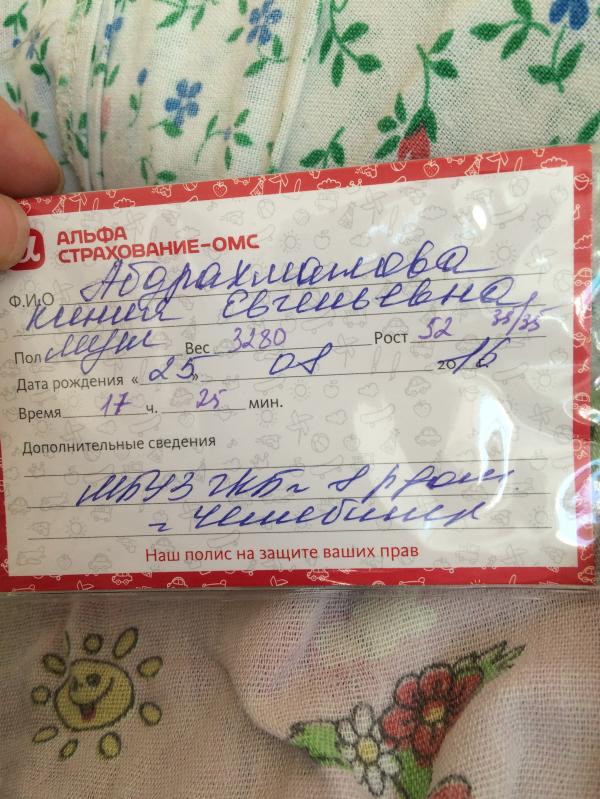 АЛЬФА
СТРАХОВАНИЕ–ОМС
Ф.И.О Абдрахманова
Ксения Евгеньевна
Пол муж Вес 3280 Рост 52 35/35
Дата рождения « 25 » 08 2016
Время 17 ч. 25 мин.
Дополнительные сведения
МБУЗ ГКБ 8 род
г Челябинск
Наш полис на защите ваших прав